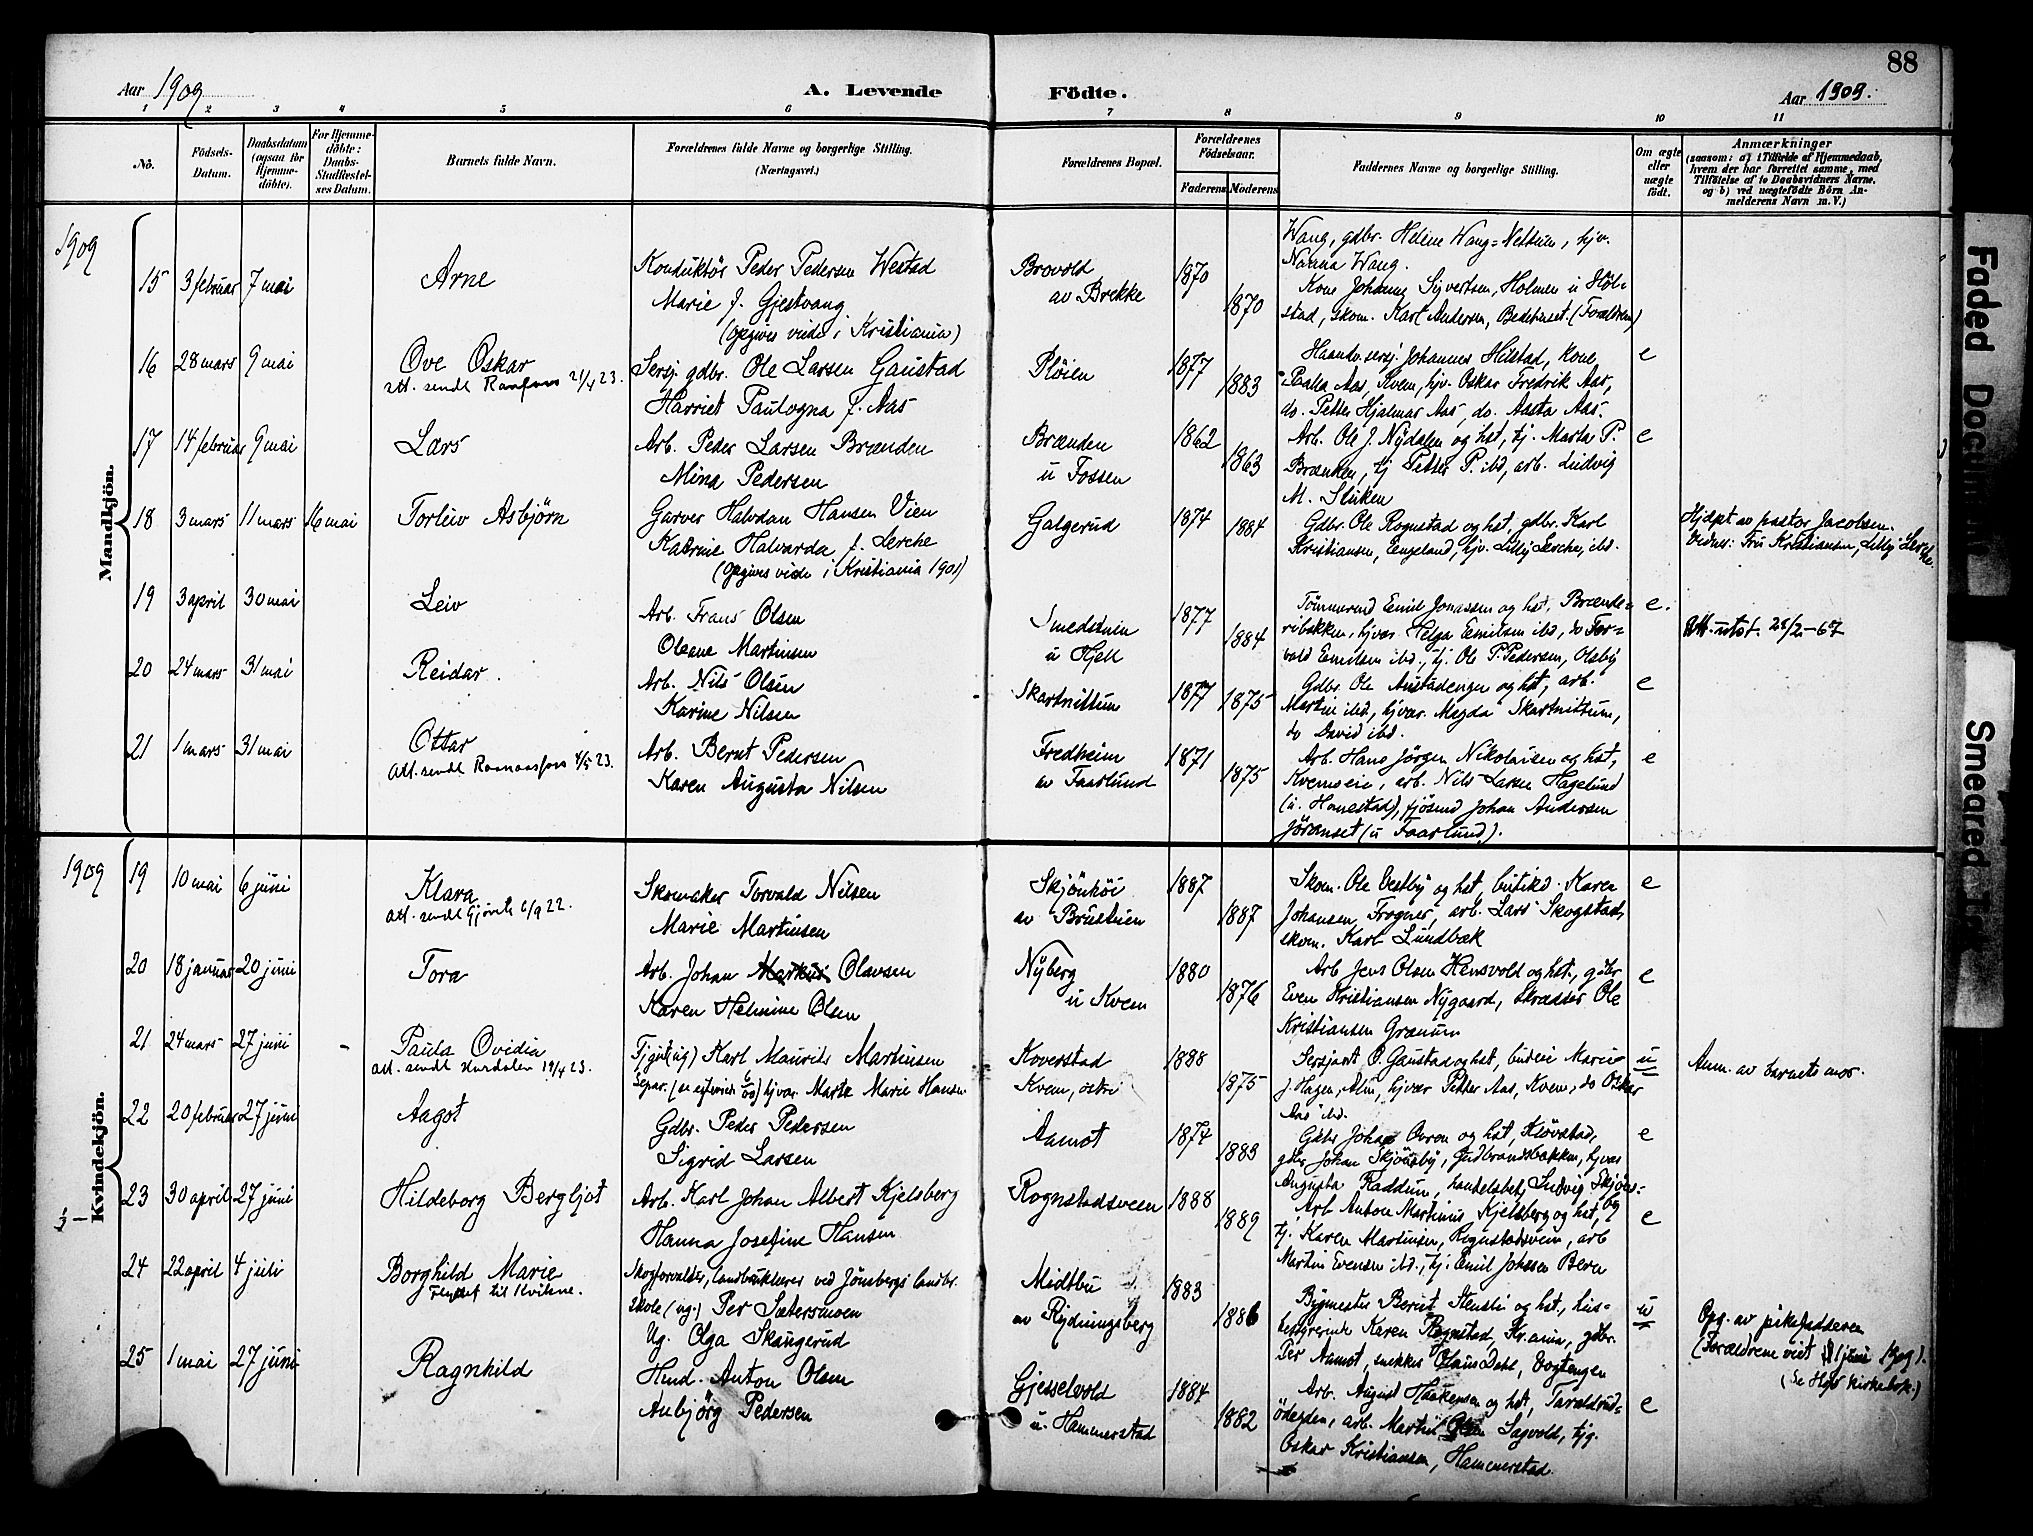 88
Aar 1909
A. Levende Födte.
Aar 1909.
1 2 3 4 5 6 7 8 9 10 11
No.
Födsels-
Datum.
Daabsdatum
(ogsaa for
Hjemme-
döbte).
For Hjemme-
döbte:
Daabs-
Stadfæstel-
ses Datum.
Barnets fulde Navn.
Forældrenes fulde Navne og borgerlige Stilling.
(Næringsvei.)
Forældrenes Bopæl.
Forældrenes
Födselsaar.
Faderens Moderens
Faddernes Navne og borgerlige Stilling.
Om ægte
eller
uægte
födt.
Anmærkninger
(saasom: a) i Tilfælde af Hjemmedaab,
hvem der har forrettet samme, med
Tilföielse af to Daabsvidners Navne,
og b) ved uægtefödte Börn An-
melderens Navn m. V.)
Mandkjön.
1909
Wang, gdbr. Helene Wang=Nettum, hjv.
Nanna Wang.
15 3 februar 7 mai
Arne
Konduktör Peder Pedersen Westad
Marie f. Gjestvang
(opgives viede i Kristiania)
Brovold
av Brekke
1870
1870
Kone Johanne Syvertsen, Holmen u Höl-
stad, skom. Karl Andersen, Bedehuset. (Forældrene)
16 28 mars 9 mai
Ove Oskar
att. sendt Raanfoss 21/4 23.
Sersj. gdbr. Ole Larsen Gaustad
Harriet Paulogna f. Aas
Pløien
1877
1883
Haandv.sersj. Johannes Helstad, Kone
Aas, Kvem, hjv. Oskar Fredrik Aas,
do. Petter Hjalmar Aas, do. Aasta Aas.
e
17 14 februar 9 mai
Lars
Arb. Peder Larsen Brænden
Mina Pedersen
Brænden
u Fossen
1862
1863
Arb. Ole J. Nydalen og hst, tj. Marta P.
Brænden, tj Petter P. ibd, arb. Ludvig
M. Sliken
e
18 3 mars 11 mars 16 mai
Torleiv Asbjörn
Garver Halvdan Hansen Vien
Katrine Halvarda f. Lerche
(opgives viede i Kristiania 1901)
Galgerud
1874
1884
Gdbr. Ole Rognstad og hst, gdbr. Karl
Kristiansen, Eengeland, hjv. Lilly Lerche, ibd.
Hjdpt av pastor Jacobsen.
Vidner: Fru Kristiansen, Lilly Lerche.
19 3 april 30 mai
Leiv
Arb. Frans Olsen
Oleane Martinsen
Smedstuen
u Hjell
1877
1884
Tömmermd Emil Jonassen og hst. Brænde-
ribakken, hjvær. Helga Emilsen ibd, do Tor-
vald Emilsen ibd., tj. Ole P. Pedersen, Olsby
e.
Att. utst. 28/2-67
20 24 mars 31 mai
Reidar
Arb. Nils Olsen
Karine Nilsen
Skartnittum
1877
1875
Gdbr. Ole Austadengen og hst, arb.
Martin ibd, hjvær. Magda Skartnittum,
do David ibd.
e
21 1 mars 31 mai
Ottar
Att. sendt Raanaasfoss 4/5 23.
Arb. Bernt Pedersen
Karen Augusta Nilsen
Fredheim
av Faarlund
1871
1875
Arb. Hans Jörgen Nikolaisen og hst,
Kvemseie, arb. Nils Larsen Hagelund
(u. Honestad), fjösmd Johan Andersen
Jöranset (u Faarlund).
e
Kvindekjön.
1909
19 10 mai 6 juni
Klara
att. sendt Gjövik 6/9 22.
Skomaker Torvald Nilsen
Marie Martinsen
Skjönhöi
av Brustuen
1887
1887
Skom. Ole Vestby og hst, butikd. Karen
Johansen, Frogner, arb. Lars Skogstad,
skom. Karl Lundbæk
e
20 18 januar 20 juni
Tora
Arb. Johan Markus Olavsen
Karen Helmine Olsen
Nyberg
u Kvem
1880
1876
Arb Jens Olsen Hensvold og hst., gdbr
Even Kristiansen Nygaard, skrædder Ole
Kristiansen Grænum
e
21 24 mars 27 juni -
Paula Ovidia
att. sendt Hurdalen 19/4 23.
Tjgut (ug) Karl Maurits Martinsen
Separ. hjvær. Marte Marie Hansen
Koverstad
Kvem, östre
1888
1875
Sersjant O. Gaustad og hst, budeie Marie
J. Hagen, Alm, hjvær Petter Aas, Kvem, do Oskar
Aas ibd.
u
Anm. av barnets mor.
22 20 februar 27 juni
Aagot
Gdbr. Peder Pedersen
Sigrid Larsen
Aamot
1874
1883
Gdbr Johan Ovren og hst, Klövstad,
gdbr Johan Skjönsby, Gudbrandsbakken, hjvær
Augusta Raddum, handelsbetj Ludvig Skjöns-
by
e
23 30 april 27 juni
Hildeborg Bergljot
Arb. Karl Johan Albert Kjelsberg
Hanna Josefine Hansen
Rognstadsveen
1888
1889
Arb Anton Martinius Kjelsberg og hst,
tj. Karen Martinsen, Rognstadsveen, arb
Martin Evensen ibd., tj. Emil Johssen Bern
e
24 22 april 4 juli
Borghild Marie
Flyttet til Kvikne.
Skogforvalter, landbrukslærer ved Jönsbergs landbr.
skole (ug.) Per Sætersmoen
Ug. Olga Skaugerud
Midtbu
av Rydningsberg
1883
1886
Bygmester Bernt Stensli og hst., hus-
bestyrerinde Karen Rognstad, Kr.ania, gdbr.
Per Aamot, snekker Olaus Dahl, Vogtengen
u
Opg. av pikefadderen
(Forældrene viet 11 juni 1909).
(Se Hjvs kirkebok.)
25 1 mai 27 juni
Ragnhild
Hmd. Anton Olsen
Anbjörg Pedersen
Gjesselvold
u. Hammerstad
1884
1882
Arb. August Haakensen og hst, Taraldrud-
ödegden, arb. Martin Olsen Sagvold, tjg.
Oskar Kristiansen, Hammerstad
e
Faded Document
Smeared Ink